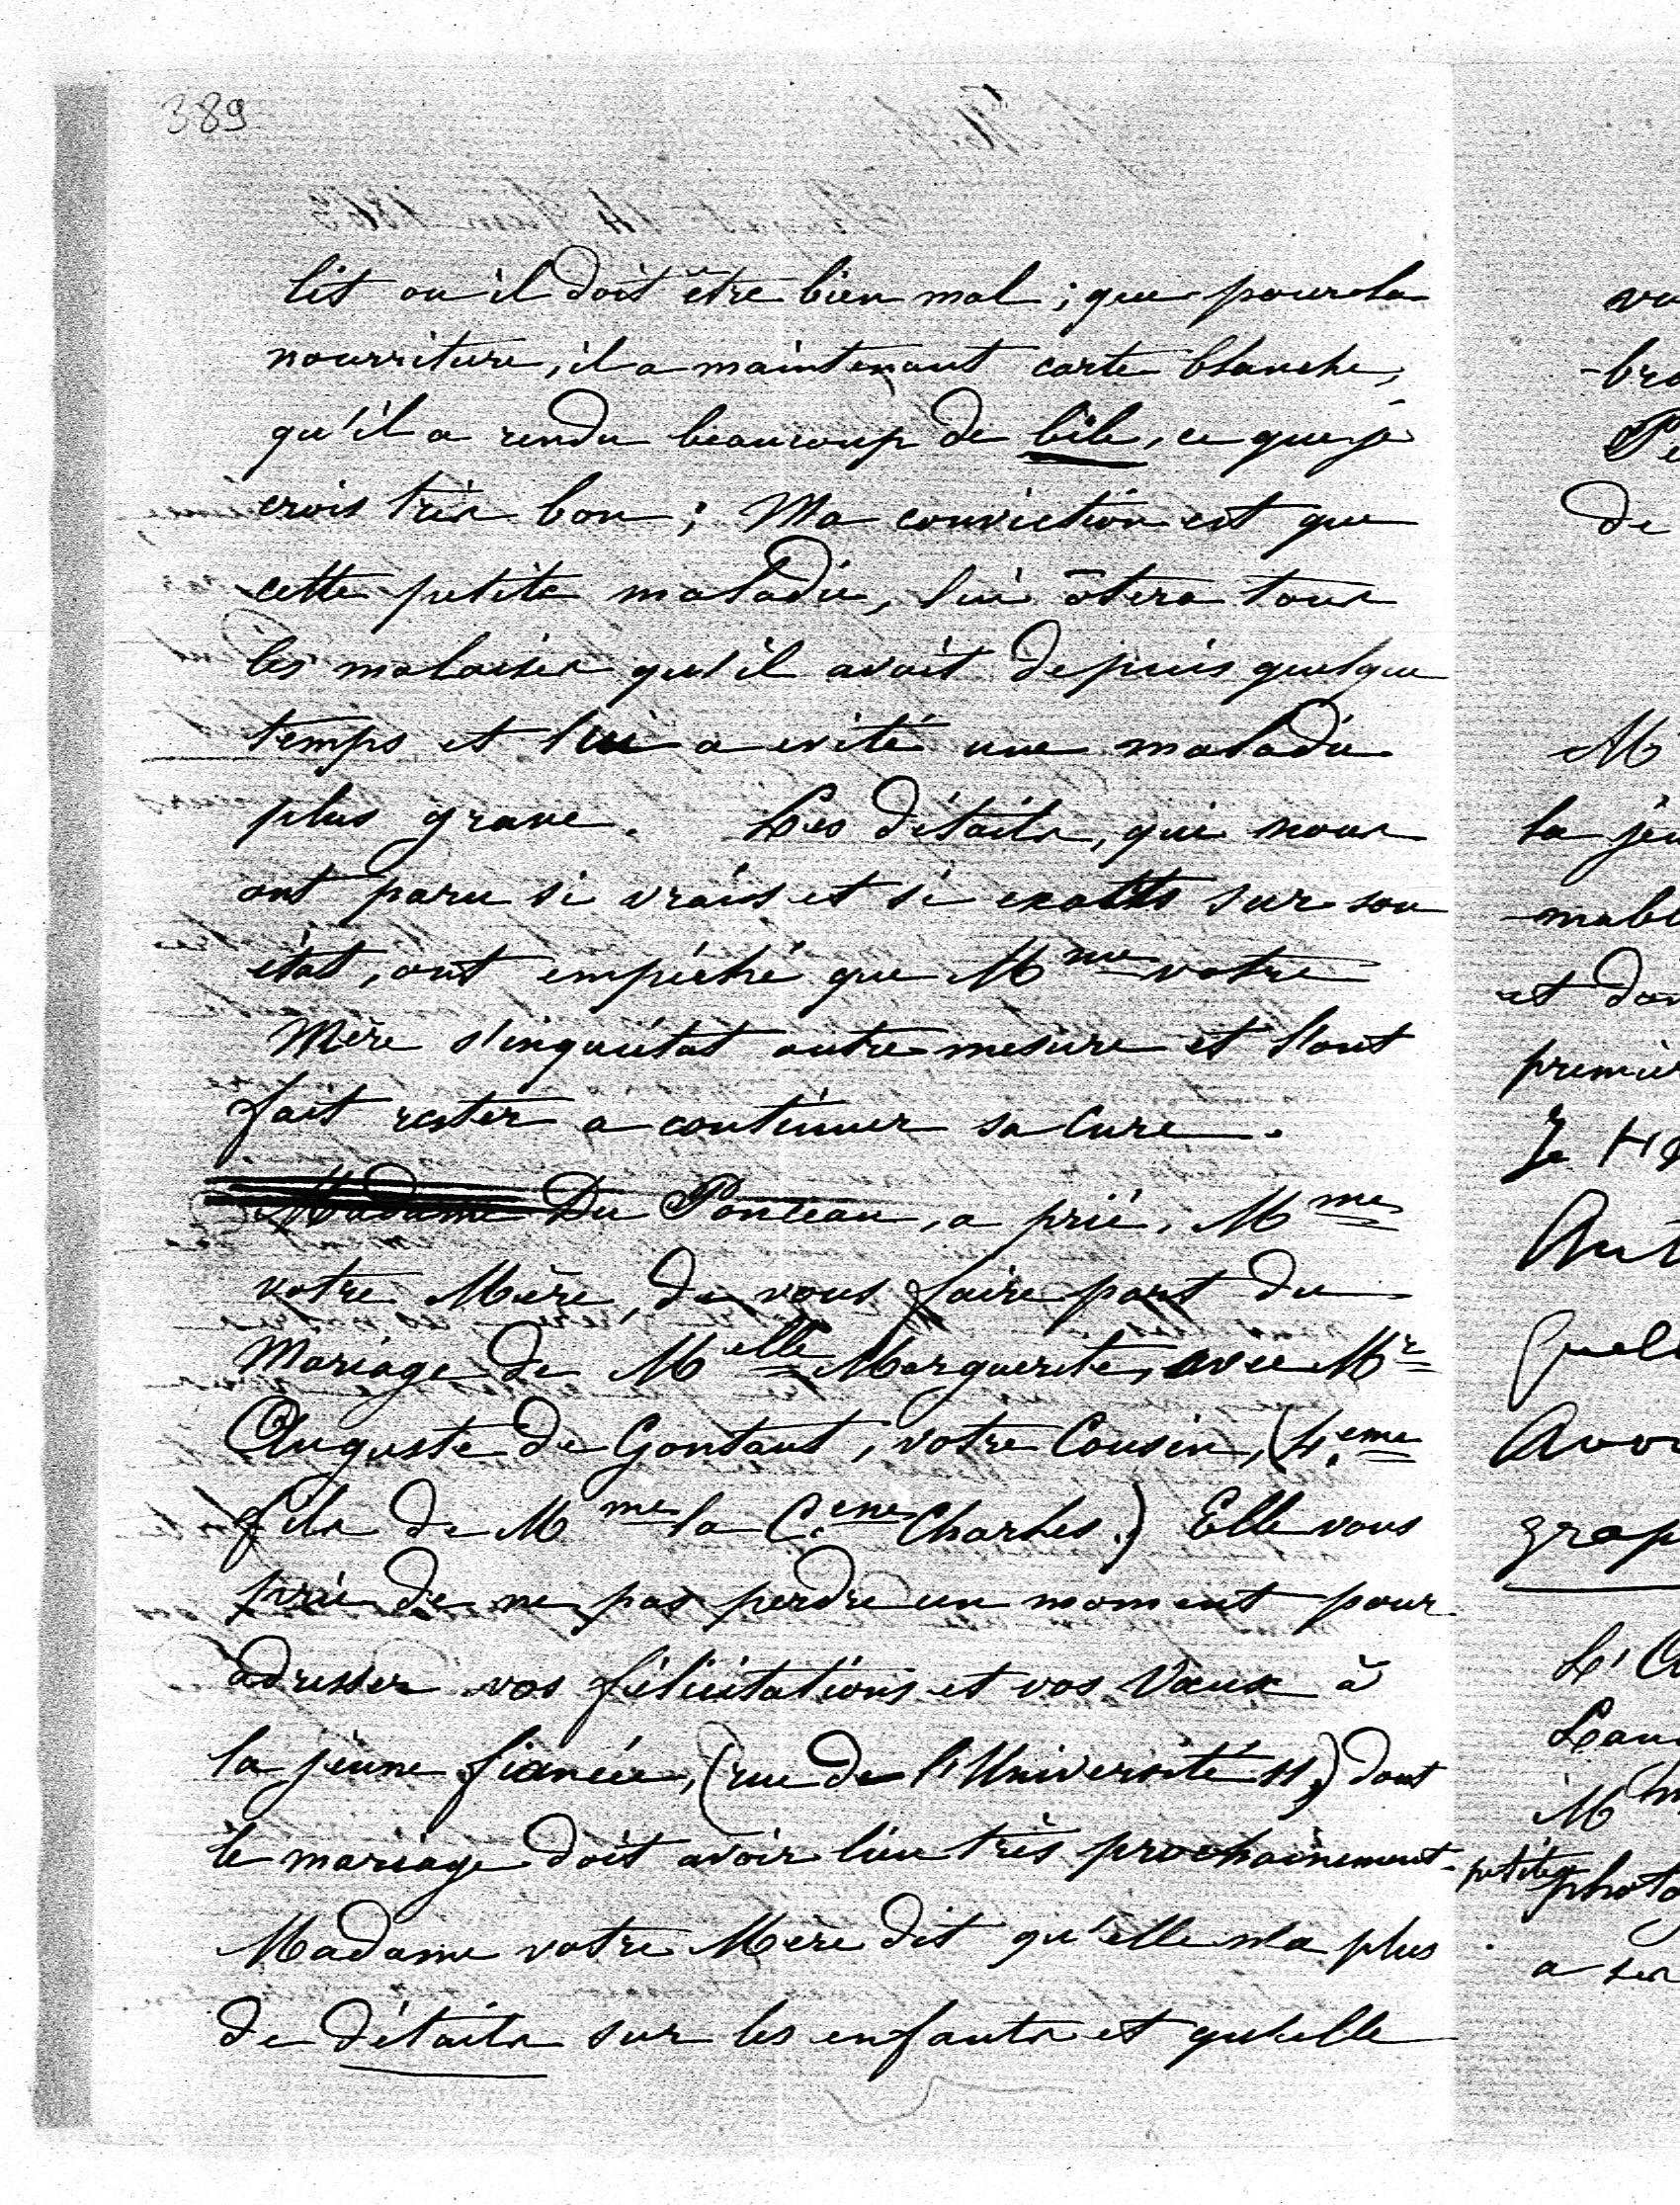 389
lit ou il doit être bien mal ; que pour la
nourriture, il a maintenant carte blanche,
qu'il a rendu beaucoup de bile, ce que je
crois très bon ; Ma conviction est que
cette petite maladie, lui ôtera tous
les malaises qu'il avait depuis quelque
temps et lui a évité une maladie
plus grave. Les détails, qui nous
ont paru si vrais et si exacts sur son
état, ont empêché que Mme votre
Mère s'inquiétat outre mesure et l'ont
fait rester a continuer sa Cure.
Madame Du Ponceau, a prié, Mme
votre Mère, de vous faire part du
Mariage de Melle Marguerite, avec Mr
Auguste de Gontaut, votre Cousin, (4.eme
fils de Mme la C.ene Charles.) Elle vous
prie de ne pas perdre un moment pour
adresser vos félicitations et vos Vœux à
la jeune fiancée, (rue de l'Université 11,) dont
le mariage doit avoir lieu très prochainement.
Madame votre Mère dit qu'elle n'a plus
de détails sur les enfants et qu'elle
de
Mr
la
et
Je
petites
a